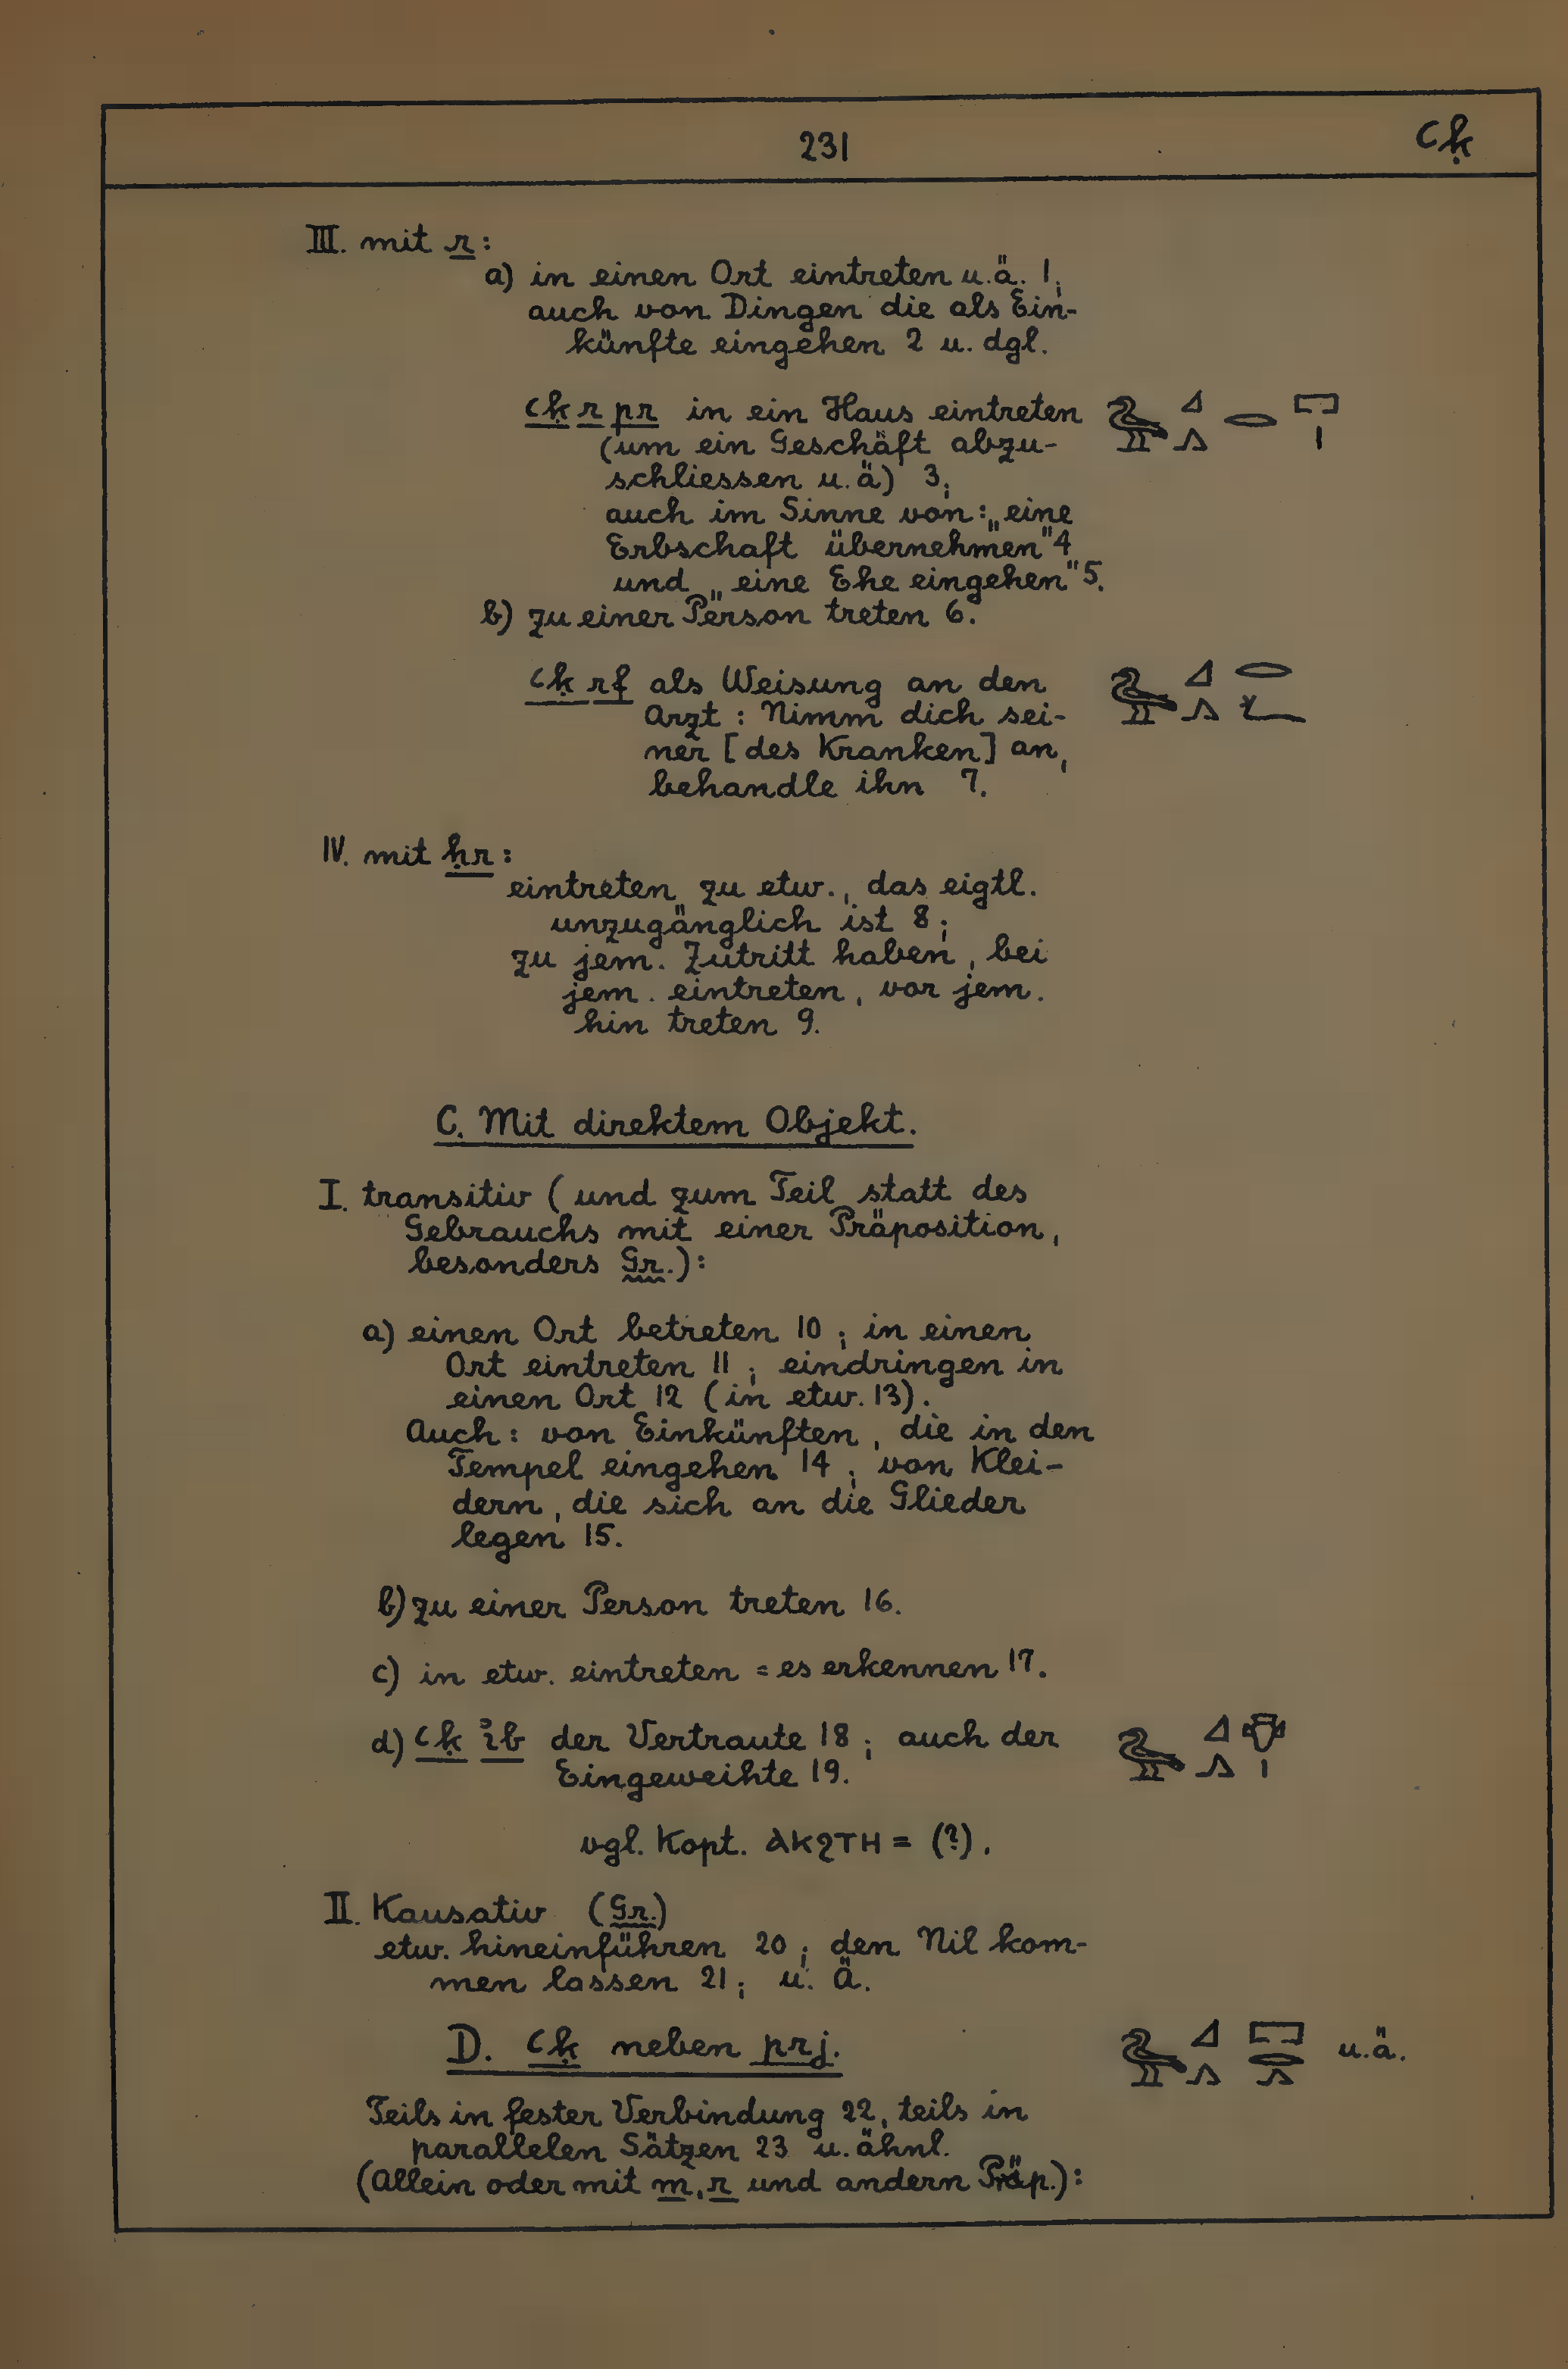 231
ꜥḳ
III. mit r:
a) in einen Ort eintreten u.ä. 1;
auch von Dingen die als Ein-
künfte eingehen 2 u. dgl.
ꜥḳ r pr in ein Haus eintreten 𓅧𓈎𓂻𓂋𓉐𓏤
(um ein Geschäft abzu-
schliessen u.ä) 3;
auch im Sinne von: „eine
Erbschaft übernehmen" 4
und „eine Ehe eingehen" 5.
b) zu einer Person treten 6.
ꜥḳ rf als Weisung an den 𓅧𓈎𓂻𓂋𓆑
Arzt: Nimm dich sei-
ner [des Kranken] an,
behandle ihn 7.
IV. mit ḥr:
eintreten zu etw., das eigtl.
unzugänglich ist 8;
zu jem. Zutritt haben, bei
jem. eintreten, vor jem.
hin treten 9.
C. Mit direktem Objekt.
I. transitiv (und zum Teil statt des
Gebrauchs mit einer Präposition,
besonders Gr.):
a) einen Ort betreten 10; in einen
Ort eintreten 11; eindringen in
einen Ort 12 (in etw. 13).
Auch: von Einkünften, die in den
Tempel eingehen 14; von Klei-
dern, die sich an die Glieder
legen 15.
b) zu einer Person treten 16.
c) in etw. eintreten = es erkennen 17.
d) ꜥḳ ı͗b der Vertraute 18; auch der 𓅧𓈎𓂻𓄣𓏤
Eingeweihte 19.
vgl. Kopt. ⲁⲕϩⲧⲏ= (?).
II. Kausativ (Gr.)
etw. hineinführen 20; den Nil kom-
men lassen 21; u. Ä.
D. ꜥḳ neben prj. 𓅧𓈎𓂻𓉐𓂋𓂻 u.ä.
Teils in fester Verbindung 22, teils in
parallelen Sätzen 23 u. ähnl.
(Allein oder mit m, r und andern Präp.):